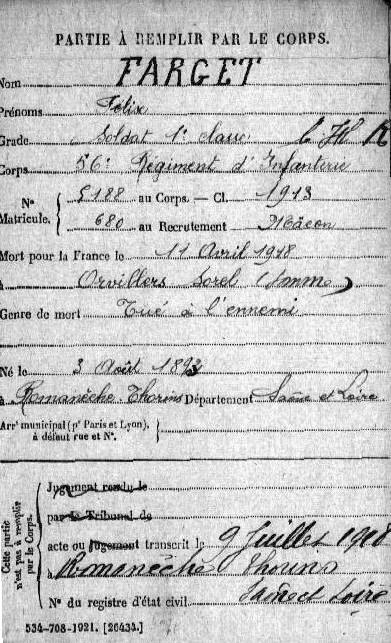 PARTIE À REMPLIR PAR LE CORPS.
Nom FARGET
Prénoms Félix
Grade Soldat 1e classe
Corps 56e Régiment d'Infanterie
N° Matricule. { 5188 au Corps. — Cl. 1913
680 au Recrutement Mâcon
Mort pour la France le 11 Avril 1918
à Orvillers Sorel (Somme)
Genre de mort Tué à l'ennemi
Né le 3 Août 1893
à Romanèche-Thorins Département Saône et Loire
Arrt municipal (pr Paris et Lyon), à défaut rue et N°. {
Cette partie n'est pas à remplir par le Corps.
Jugement rendu le
par le Tribunal de
acte ou jugement transcrit le 9 Juillet 1918
à Romanèche Thorins
Saône et Loire
N° du registre d'état civil
534-708-1921. [26434.]